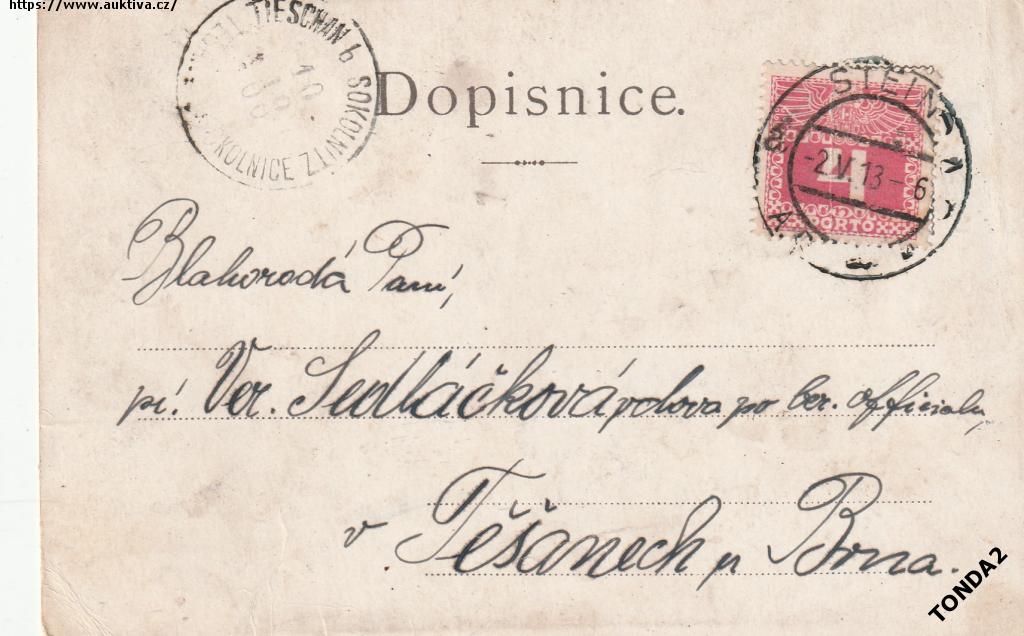 https://www.auktiva.cz/
TIESCHAN b. SOKOLNITZ
KOLNICE
10
Dopisnice.
STEIN
-2.V.13-6
4
PORTO
Blahorodá Paní,
pí. Ver. Sedláčková, vdova po ber. officialu,
v Těšanech u Brna.
TONDA2